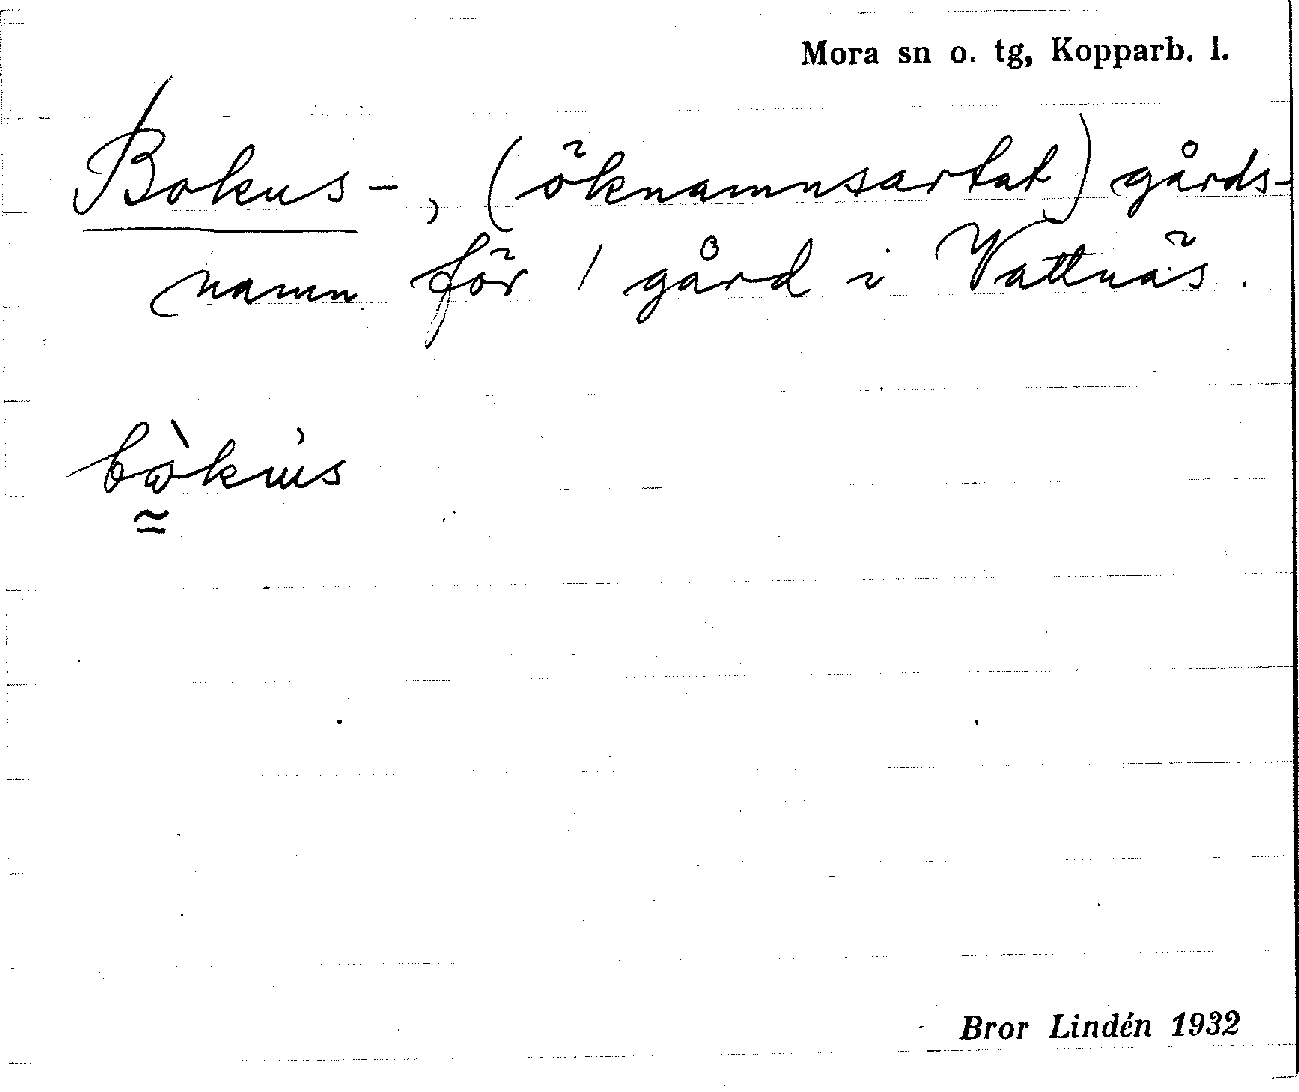 Mora sn o. tg, Kopparb. l.
Bokus-, (öknamnsartat) gårds-
namn för 1 gård i Vattnäs.
bɷ̀kus
Bror Lindén 1932